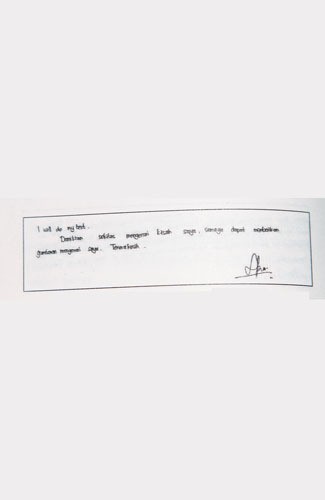 I will do my best.
Demikian sekilas mengenai kisah saya, semoga dapat memberikan
gambaran mengenai saya. Terima kasih.